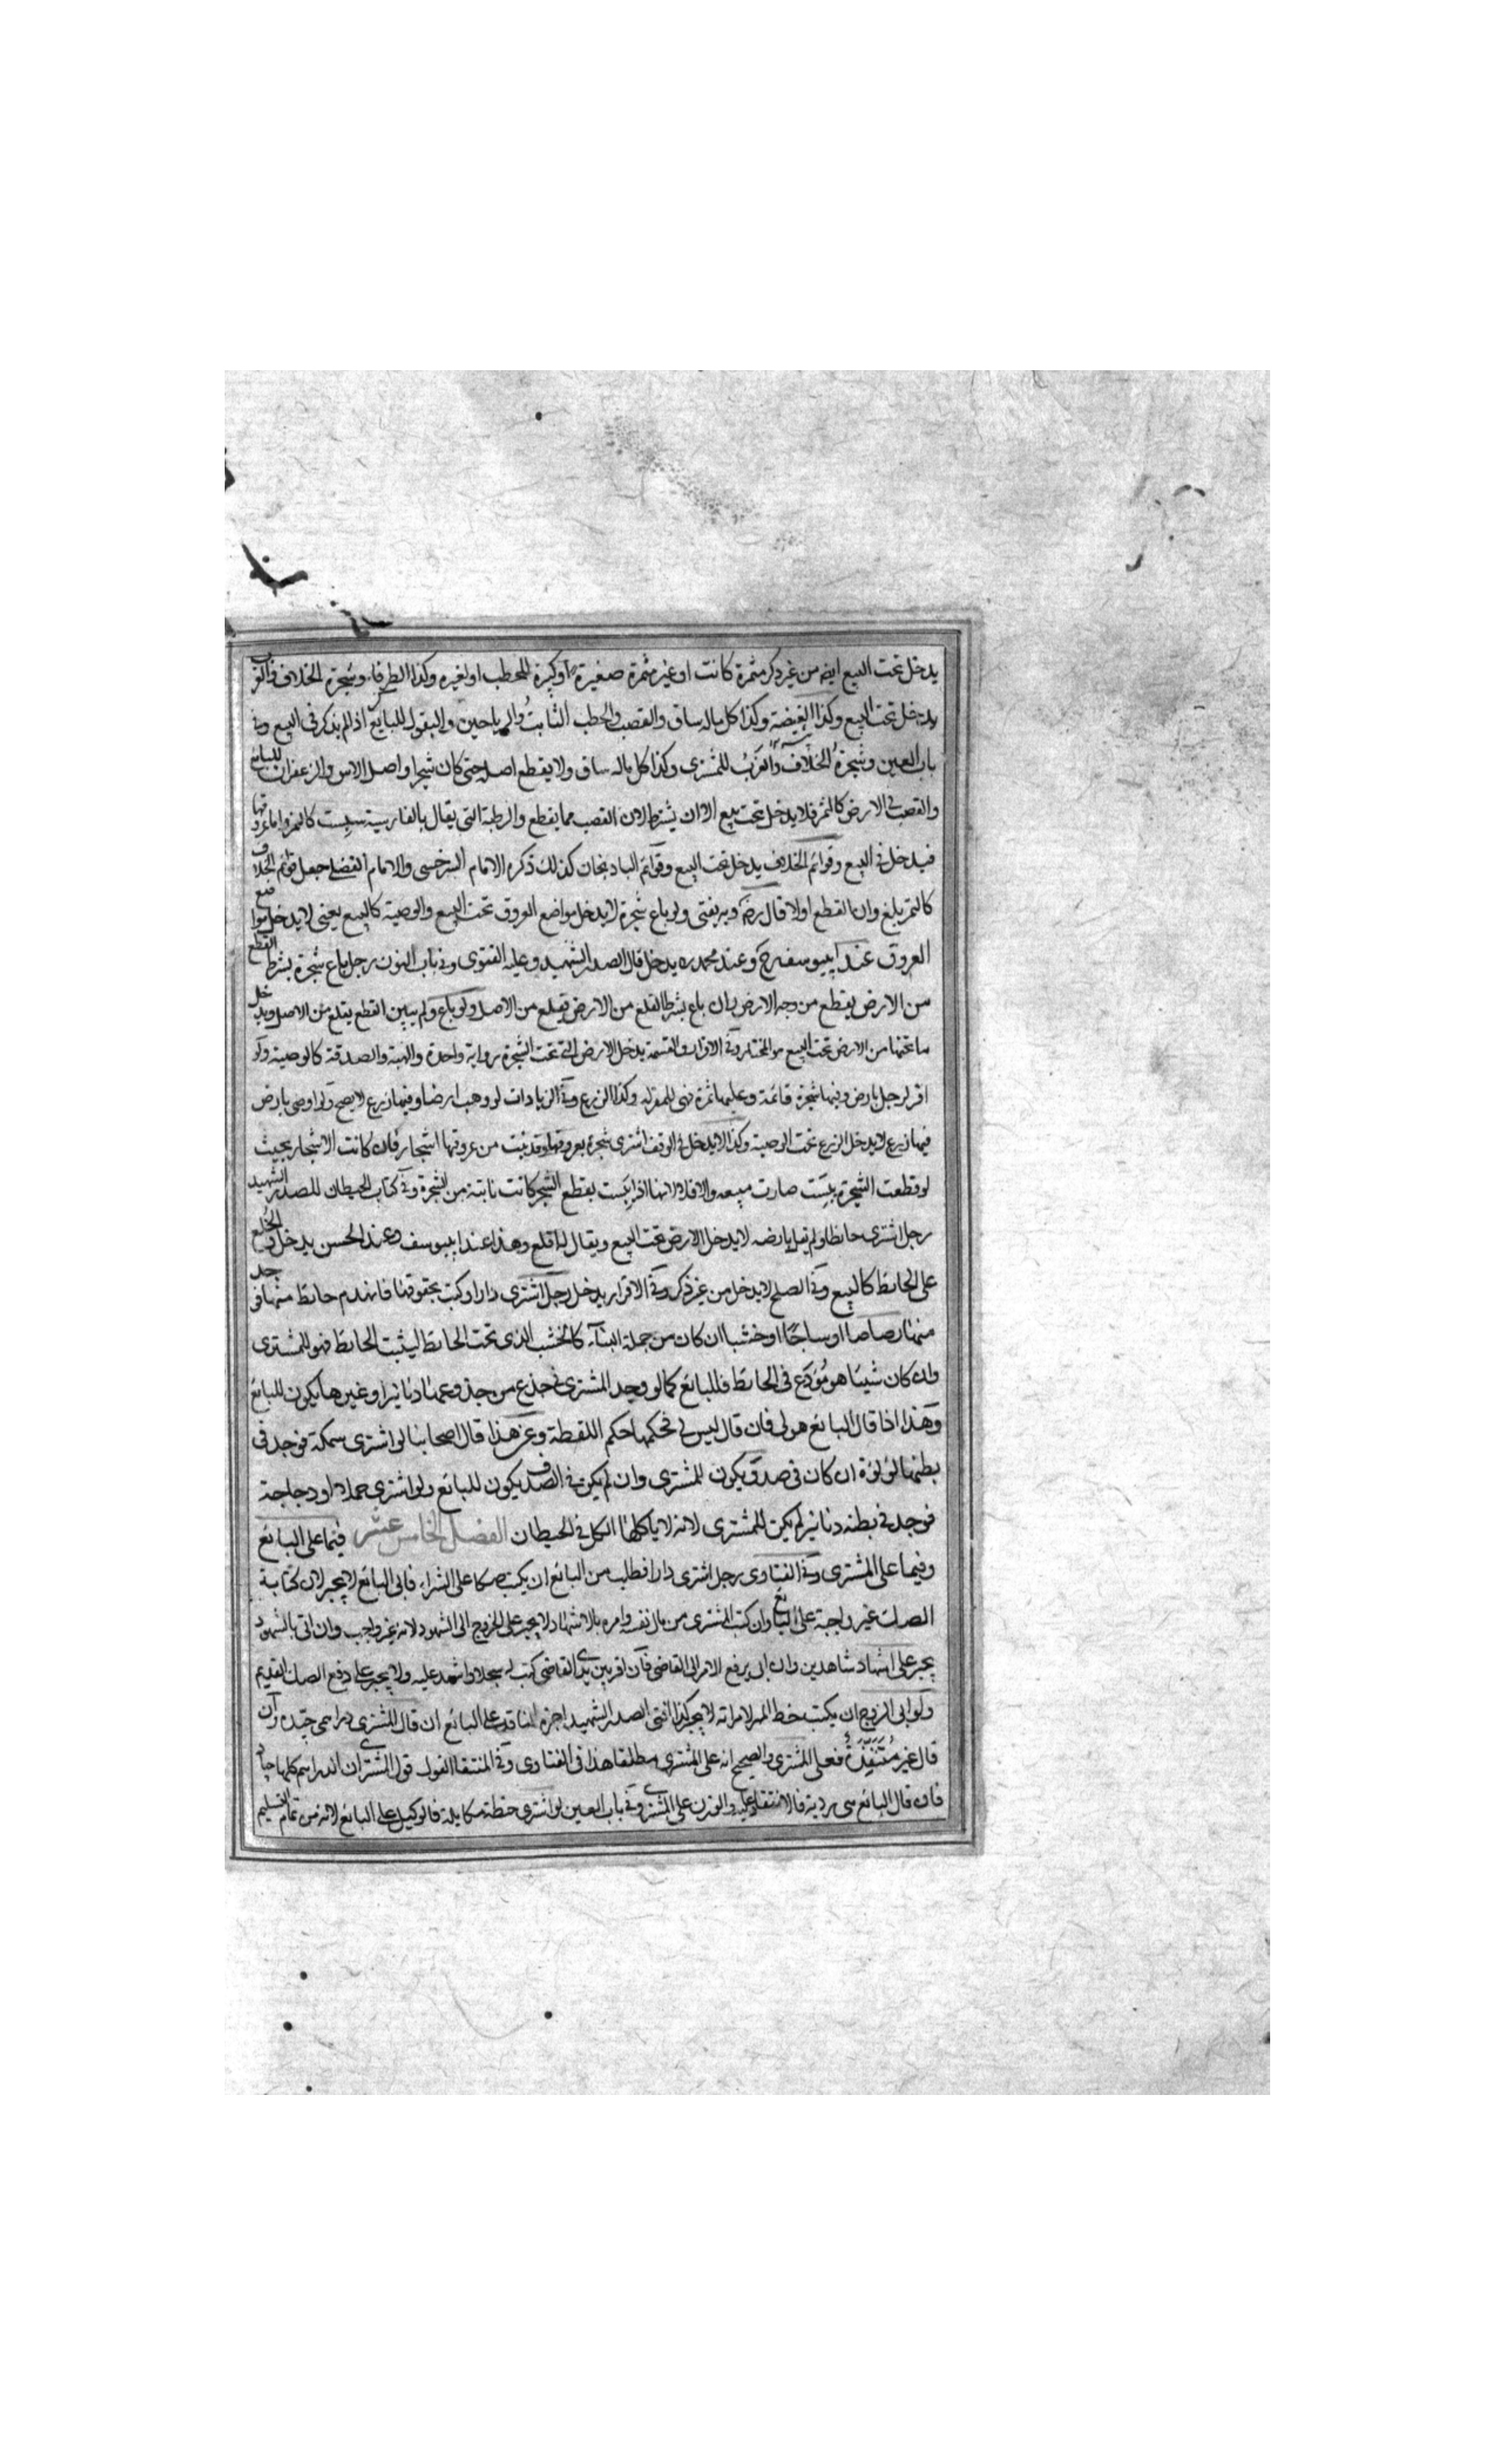 يدخل تحت البيع ايضه من غير ذكر مثمرة كانت او غير مثمرة صغيرة او كبيرة للحطب او لغيره وكذا الطرفاء وشجرة الخلاف والغرب
يدخل تحت البيع وكذا الغيضة وكذا كل ماله ساق والقصب والحطب الثابت والرياحين والبقول للبايع اذا لم يذكر في البيع وفي
باب العين وشجرة الخلاف والغرب للمشترى وكذا كل ماله ساق ولا يقطع اصله حتى كان شجرا واصل الاس والزعفران للبائع
والقصب في الارض كالثمر فلا يدخل تحت بيع الا ان يشترط لان القصب مما يقطع والرطبة التى يقال بالفارسية سبست كالثمر واما عروقها
فيدخل في البيع وقوائم الخلاف يدخل تحت البيع وقوائم الباذنجان كذلك ذكره الامام السرخسى والامام الفضلى جعل قوائم الخلاف
كالثمر بلغ وان القطع اولا قال رضه وبه يفتى ولو باع شجرة لا يدخل مواضع العروق تحت البيع والوصية كالبيع يعنى لا يدخل مواضع
العروق عند ابييوسف رح وعند محمد ره يدخل قال الصدر الشهيد وعليه الفتوى وفي باب النون رجل باع شجرة بشرط القطع
من الارض يقطع من وجه الارض وان باع بشرط القلع من الارض يقلع من الاصل ولو باع ولم يبين القطع يقلع من الاصل ويدخل
ما تحتها من الارض تحت البيع هو المختار وفي الاقرار والقسمة يدخل الارض التي تحت الشجرة برواية واحدة والهبة والصدقة كالوصية ولو
اقر لرجل بارض وفيها شجرة قائمة وعليها ثمرة فهى للمقر له وكذا الزرع وفي الزيادات لو وهب ارضا وفيها زرع لا يصح ولو اوصى بارض
فيها زرع لا يدخل الزرع تحت الوصية وكذا لا يدخل في الوقف اشترى شجرة بعروقها وقد نبت من عروقها اشجار فان كانت الاشجار بحيث
لو قطعت الشجرة يبست صارت مبيعه والا فلا لانها اذا يبست بقطع الشجر كانت نابتة من الشجرة وفي كتاب الحيطان للصدر الشهيد
رجل اشترى حائطا ولم يقل بارضه لا يدخل الارض تحت البيع ويقال له اقلع وهذا عند ابييوسف وعند الحسن يدخل والخلع
على الحائط كالبيع وفي الصلح لا يدخل من غير ذكر وفي الاقرار يدخل رجل اشترى دارا وكتب بحقوقها فانهدم حائط منها فوجد
منها رصاصا او ساجا او خشبا ان كان من جملة البناء كالخشب الذى تحت الحائط ليثبت الحائط فهو للمشترى
وان كان شيئا هو مودع في الحائط فللبائع كما لو وجد المشترى في جذع من جذوعها دنانيرا وغيرها يكون للبائع
وهذا اذا قال البائع هو لى فان قال ليس لى فحكمها حكم اللقطة وعن هذا قال اصحابنا لو اشترى سمكة فوجد في
بطنها لؤلؤة ان كان في صدف يكون للمشترى وان لم يكن في الصدف يكون للبائع ولو اشترى حملا او دجاجة
فوجد في بطنه دنانير لم يكن للمشترى لانه لا ياكلها الكل في الحيطان الفصل الخامس عشر فيما على البائع
وفيما على المشترى وفي الفتاوى رجل اشترى دارا فطلب من البائع ان يكتب صكا على الشراء فابى البائع لا يجبر لان كتابة
الصك غير واجبة على البائع وان كتب المشترى من مال نفسه وامره بالاشهاد لا يجبر على الخروج الى الشهود لانه غير واجب وان اتى بالشهود
يجبر على اشهاد شاهدين وان ابى يرفع الامر الى القاضى فان اقر بين يدى القاضى كتب له سجلا واشهد عليه ولا يجبر على دفع الصك القديم
ولو ابى الزوج ان يكتب خط المهر لامراته لا يجبر كذا افتى الصدر الشهيد اجرة الناقد على البائع ان قال المشترى دراهمى جيده وان
قال غير منتقدة فعلى المشترى والصحيح انه على المشترى مطلقا هذا فى الفتاوى وفي المنتقا القول قول المشترى ان الدراهم كلها جياد
فان قال البائع هى ردية فالانتقاد عليه والوزن على المشترى وفي باب العين لو اشترى حنطة مكايلة فالوكيل على البائع لانه من تمام التسليم